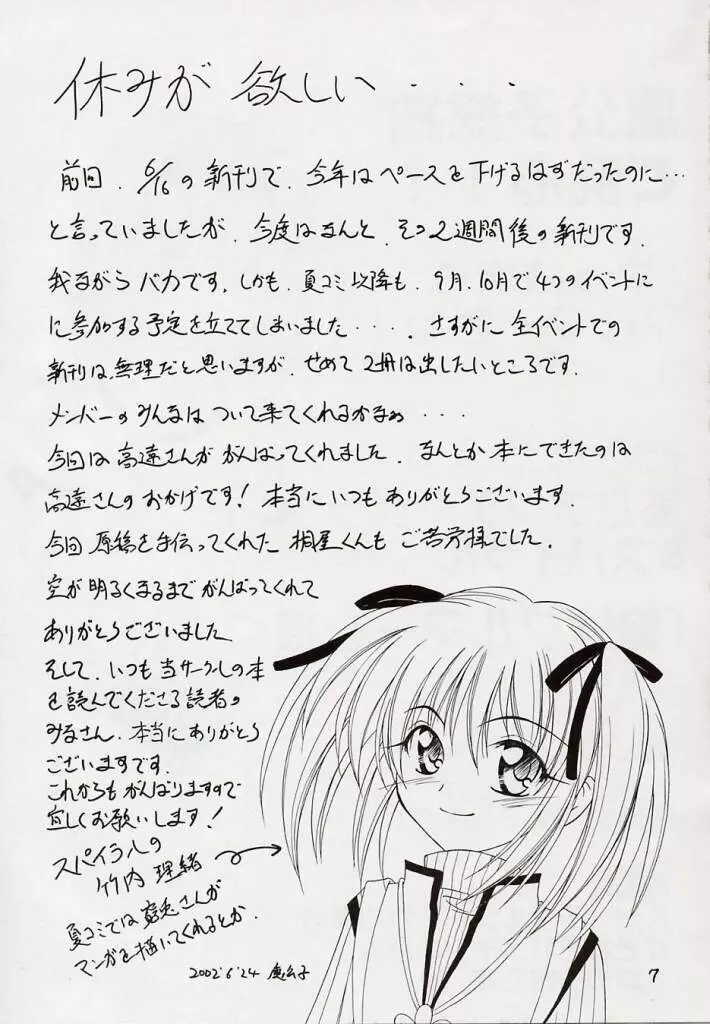 休みが 欲しい・・・
前回、6/16の新刊で、今年はペースを下げるはずだったのに…
と言っていましたが、今度はなんと、その2週間後の新刊です。
我ながらバカです。しかも、夏コミ以降も、9月、10月で4つのイベントに
に参加する予定を立ててしまいました・・・。さすがに全イベントでの
新刊は無理だと思いますが、せめて2冊は出したいところです。
メンバーのみんなはついて来てくれるかなぁ・・・
今回は高遠さんががんばってくれました。なんとか本にできたのは
高遠さんのおかげです!本当にいつもありがとうございます。
今回原稿を手伝ってくれた桐屋くんもご苦労様でした。
空が明るくなるまでがんばってくれて
ありがとうございました
そして、いつも当サークルの本
を読んでくださる読者の
みなさん、本当にありがとう
ございますです。
これからもがんばりますので
宜しくお願いします!
スパイラルの
竹内 理緒
夏コミでは兎さんが
マンガを描いてくれるとか。
2002'6'24
7